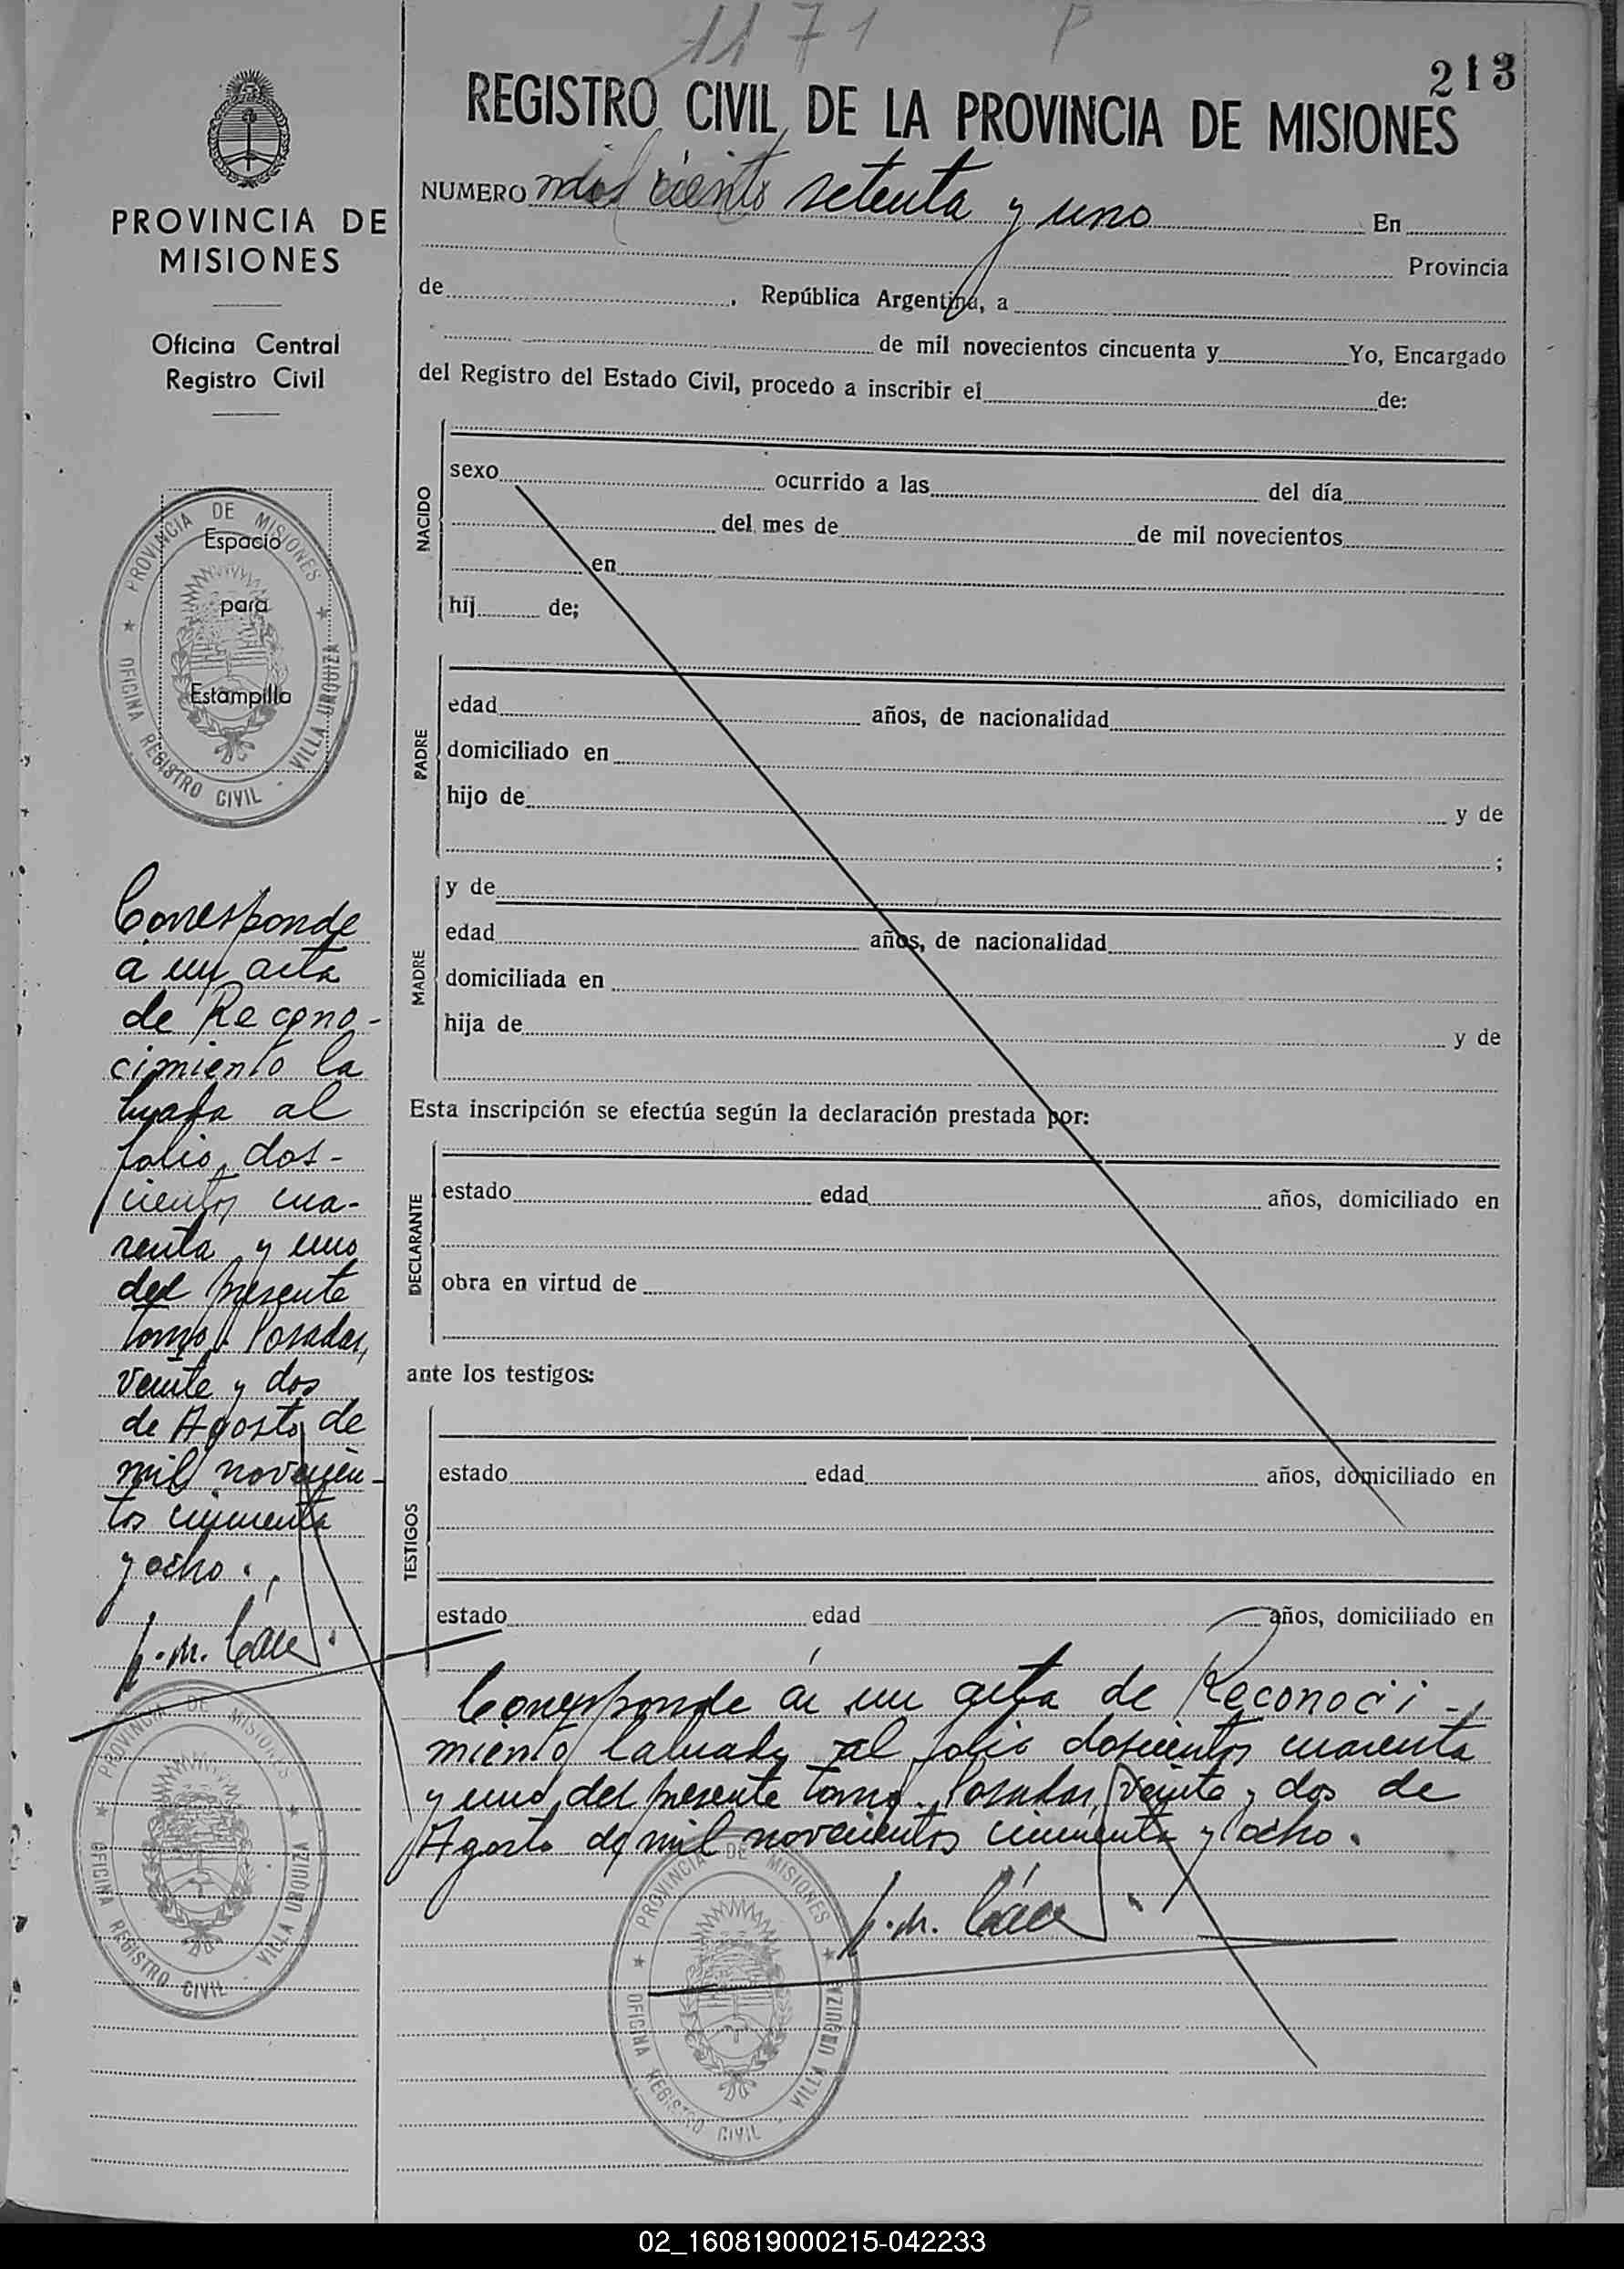 1171 P
213
REGISTRO CIVIL DE LA PROVINCIA DE MISIONES
NUMERO mil ciento setenta y uno En
Provincia
de , República Argentina, a
de mil novecientos cincuenta y Yo, Encargado
del Registro del Estado Civil, procedo a inscribir el de:
NACIDO
sexo ocurrido a las del día
del mes de de mil novecientos
en
hij de;
PADRE
edad años, de nacionalidad
domiciliado en
hijo de y de
;
MADRE
y de
edad años, de nacionalidad
domiciliada en
hija de y de
Esta inscripción se efectúa según la declaración prestada por:
DECLARANTE
estado edad años, domiciliado en
obra en virtud de
ante los testigos:
TESTIGOS
estado edad años, domiciliado en
estado edad años, domiciliado en
Corresponde a un acta de Reconoci-
miento labrada al folio doscientos cuarenta
y uno del presente tomo. Posadas, veinte y dos de
Agosto de mil novecientos cincuenta y ocho.
PROVINCIA DE MISIONES
OFICINA REGISTRO CIVIL - VILLA URQUIZA
PROVINCIA DE
MISIONES
Oficina Central
Registro Civil
Espacio
para
Estampilla
PROVINCIA DE MISIONES
OFICINA REGISTRO CIVIL - VILLA URQUIZA
Corresponde
a un acta
de Recono-
cimiento la
brada al
folio dos-
cientos cua-
renta y uno
del presente
tomo. Posadas,
veinte y dos
de Agosto de
mil novecien-
tos cincuenta
y ocho.
PROVINCIA DE MISIONES
OFICINA REGISTRO CIVIL VILLA URQUIZA
02_160819000215-042233